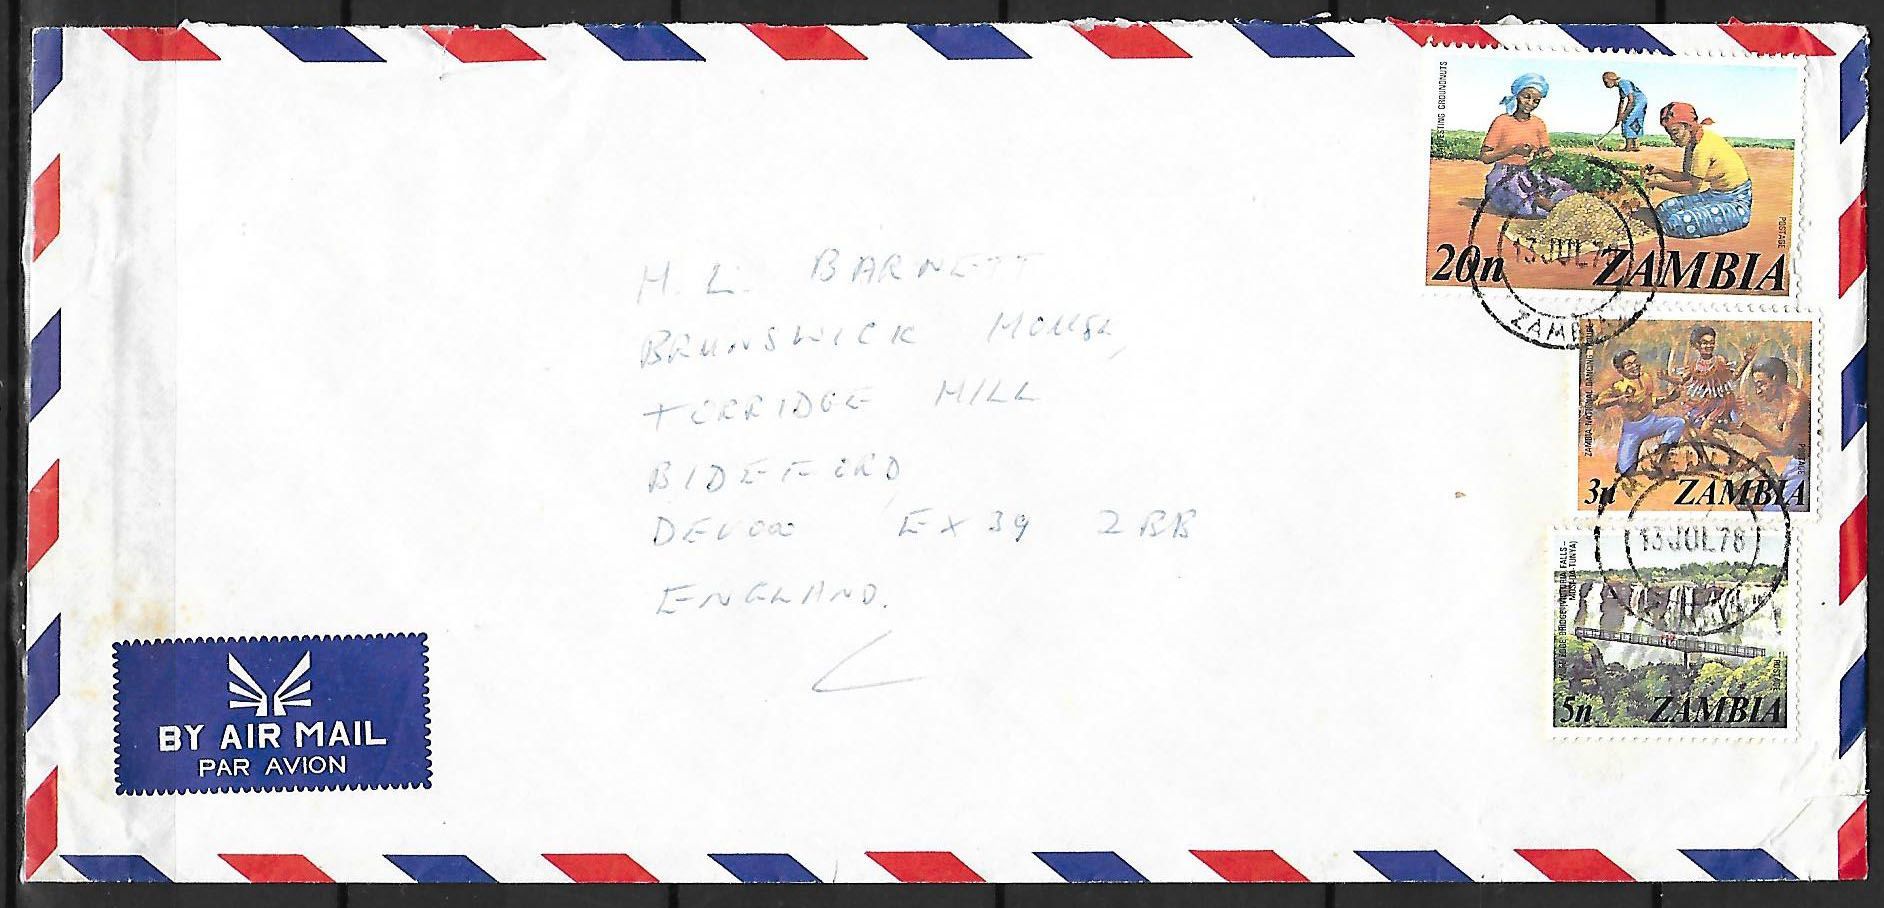 HARVESTING GROUNDNUTS
POSTAGE
20n ZAMBIA
13 JUL 78
ZAMBIA
H. L. BARNETT
BRUNSWICK HOUSE,
TORRIDGE HILL
BIDEFORD
DEVON EX39 2BB
ENGLAND.
ZAMBIA NATIONAL DANCING TROUPE
POSTAGE
3n ZAMBIA
13 JUL 78
KNIFE EDGE BRIDGE (VICTORIA FALLS-
MOSI-OA-TUNYA)
POSTAGE
5n ZAMBIA
BY AIR MAIL
PAR AVION